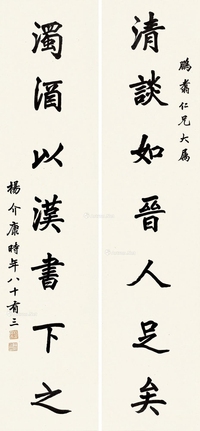 鵬翥仁兄大屬
清談如晉人足矣
濁酒以漢書下之
楊介康時年八十有三